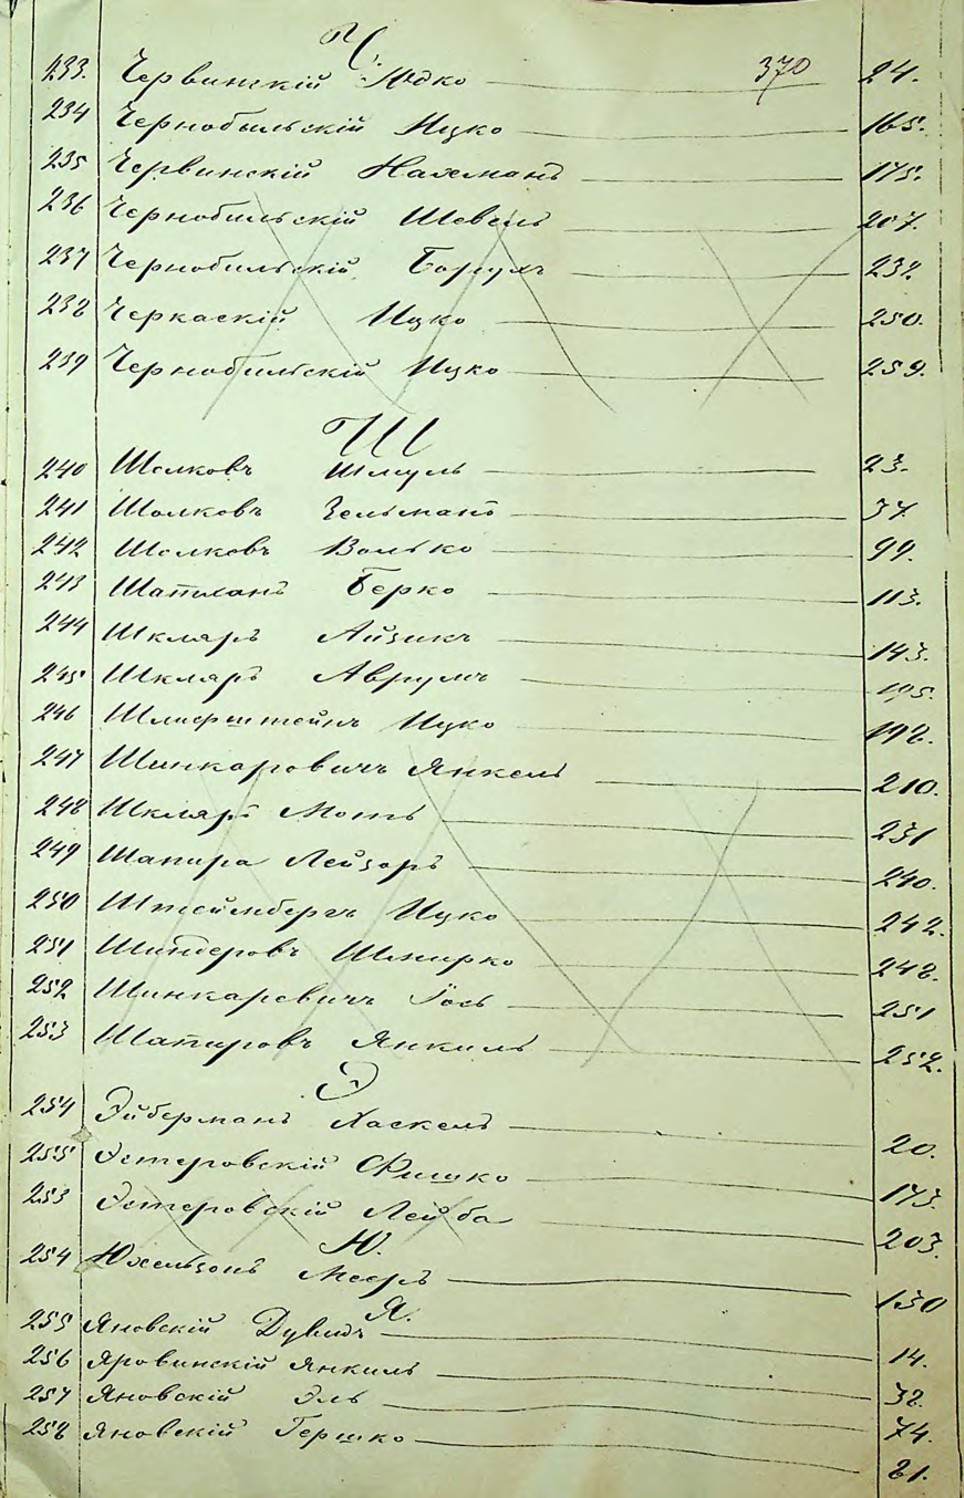 Ч.
233. Червинскій Юдко 370 24.
234 Чернобыльскій Ицко 165.
235 Червинскій Нахманъ 175.
236 Чернобильскій Шевель 207.
237 Чернобильскій Борухъ 232
238 Черкаскій Ицко 250.
239 Чернобильскій Ицко 259.
Ш
240 Шолковъ Шмуль 23.
241 Шолковъ Зельманъ 37
242 Шолковъ Волько 99.
243 Берко 113.
244 Шкляръ Айзикъ 143.
245 Шкляръ Аврумъ 195.
246 Шлифштейнъ Ицко 198.
247 Шинкаровичъ Янкель 210.
248 Шкляръ Моть 231
249 Шапира Лейзоръ 240.
250 Штейнбергъ Ицко 242.
251 Шмирко 248.
252 Шинкаревичъ Іось 251
253 Шапировъ Янкиль 252.
Э
254 Эйберманъ Хаскель 20.
255 Эстеровскій Фишко 173.
253 Эстеровскій Лейба 203.
Ю.
254 Юхельзонъ Мееръ 130
Я.
255 Яновскій Дувидъ 14.
256 Яровинскій Янкиль 32.
257 Яновскій Эль 74.
258 Яновскій Гершко 81.